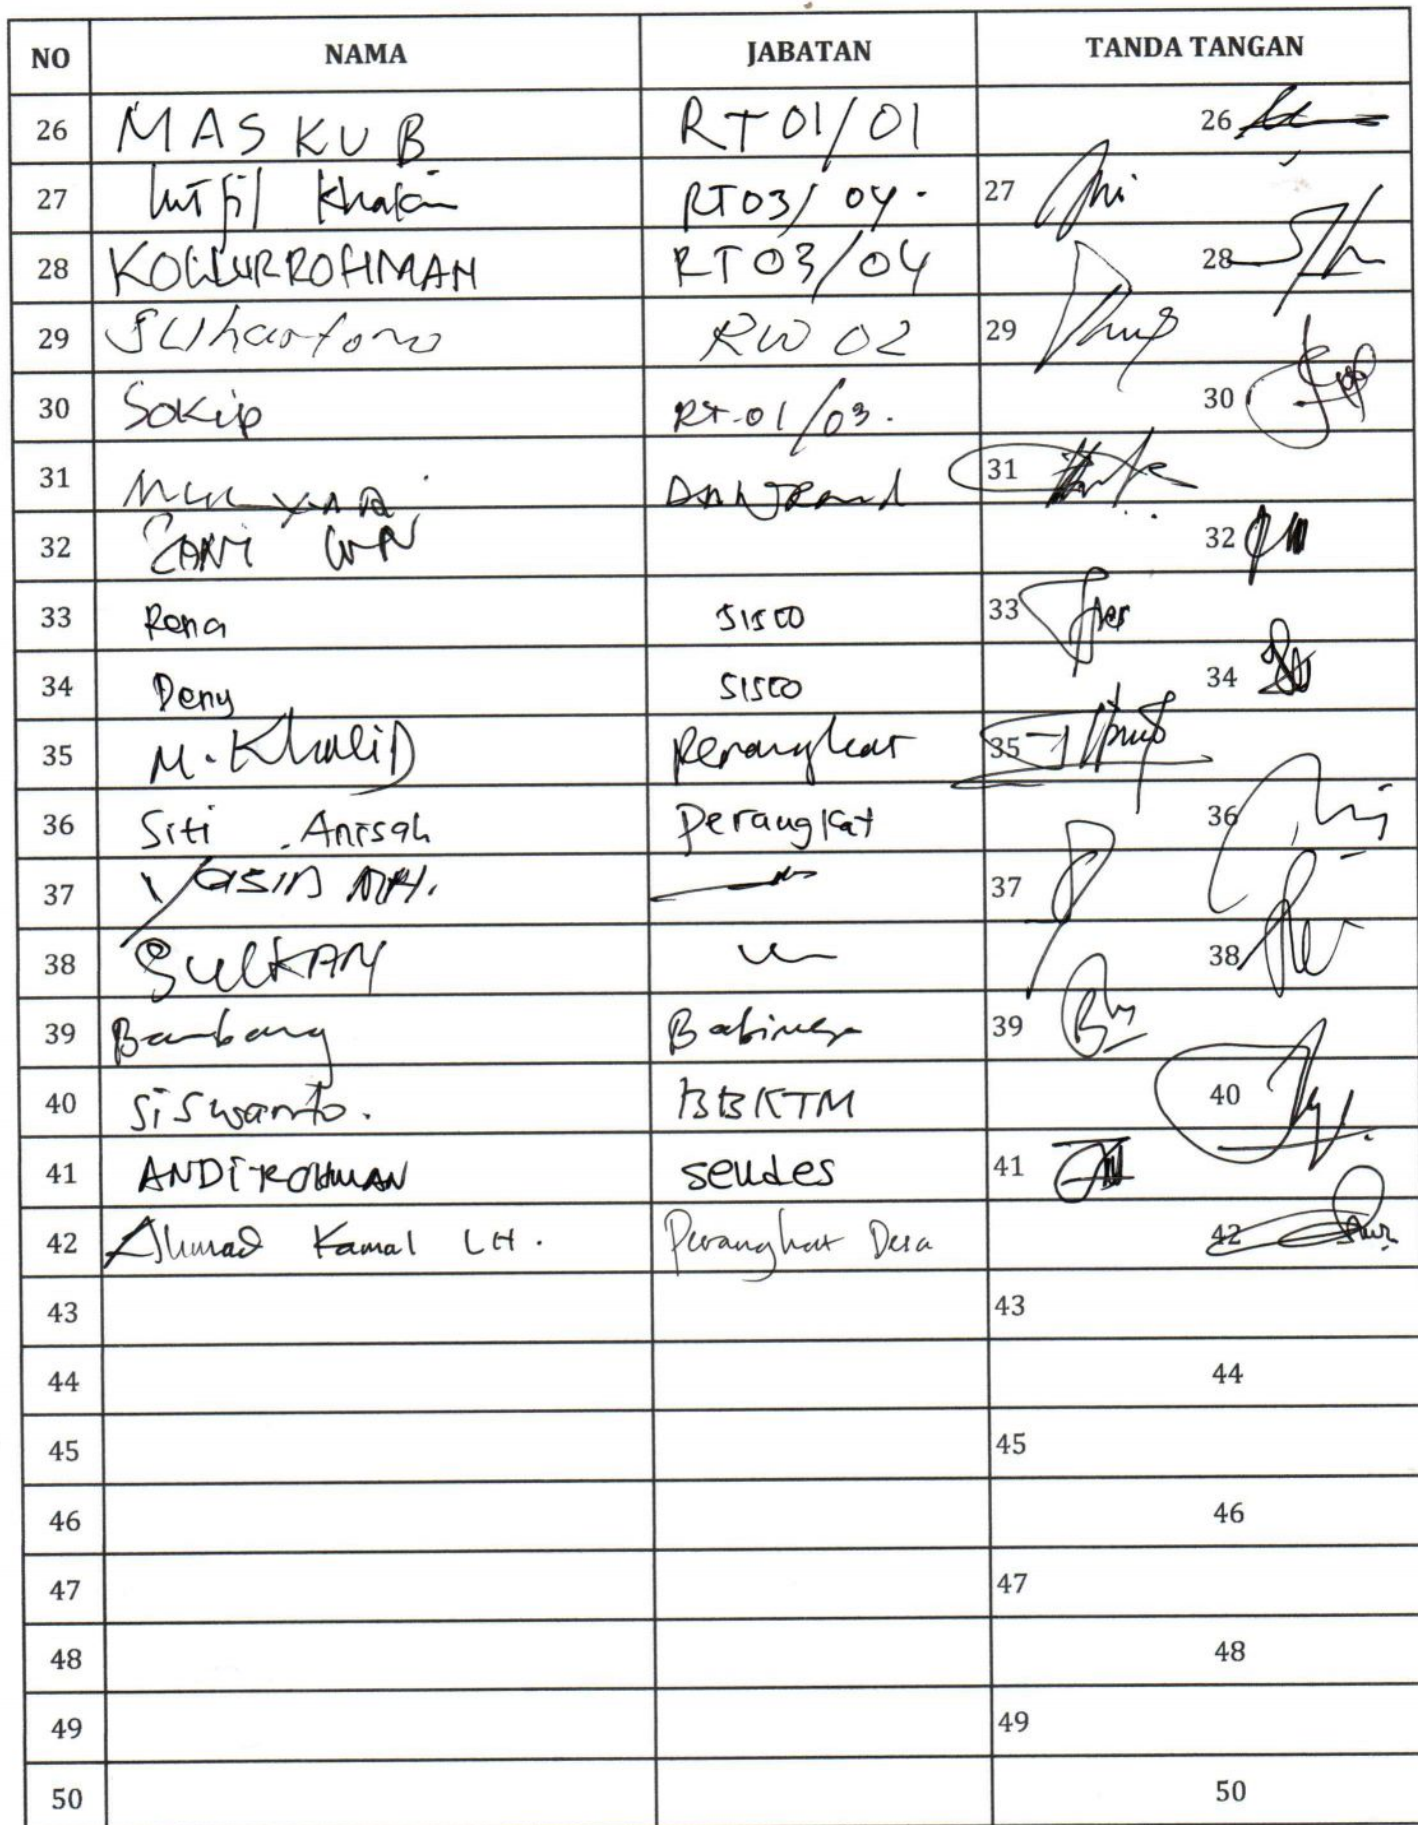 NO NAMA JABATAN TANDA TANGAN
26 MASKUB RT 01/01 26
27 Khakim RT 03/04. 27
28 RT 03/04 28
29 SUhartono RW 02 29
30 Sokip RT-01/03. 30
31 31
32 32
33 Rena SISCO 33
34 Deny SISCO 34
35 M. KhaliD Perangkat 35
36 Siti Anisah Perangkat 36
37 YASIN MH. 37
38 SULKAN 38
39 Bambang Babinsa 39
40 Siswanto. BBKTM 40
41 ANDI ROHMAN sekdes 41
42 Ahmad Kamal LH. Perangkat Desa 42
43 43
44 44
45 45
46 46
47 47
48 48
49 49
50 50